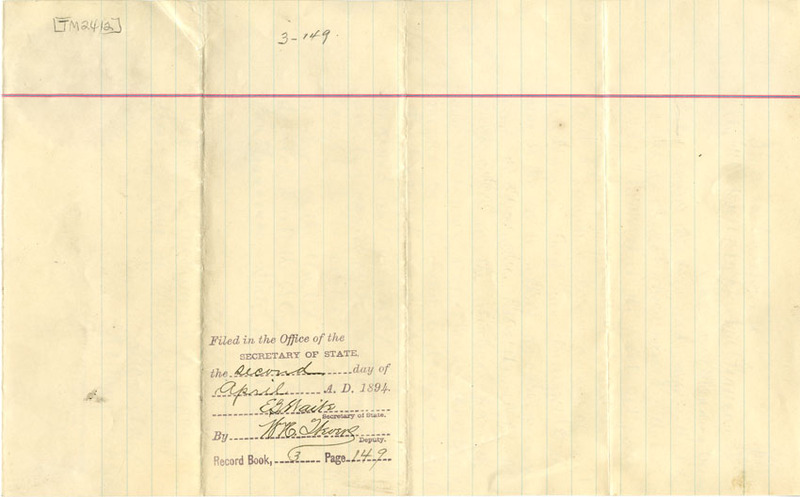 [TM2412]
3-149.
Filed in the Office of the
SECRETARY OF STATE,
the second day of
April A. D. 1894.
E. B. Waite
Secretary of State.
By W. H.
Deputy.
Record Book, 3 Page 149